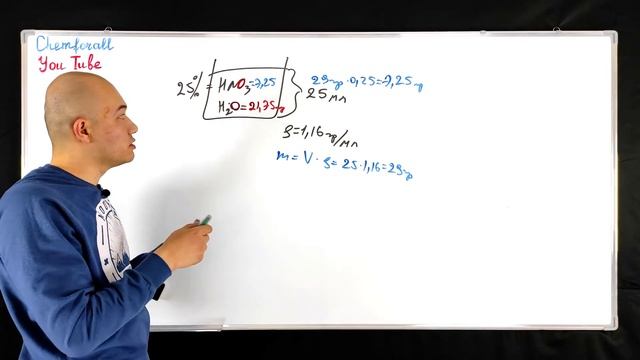 Chemforall
You Tube
25% = HNO₃=7,25
H₂O=21,75гр
29гр·0,25=7,25гр
25мл
ρ=1,16гр/мл
m=V·ρ=25·1,16=29гр